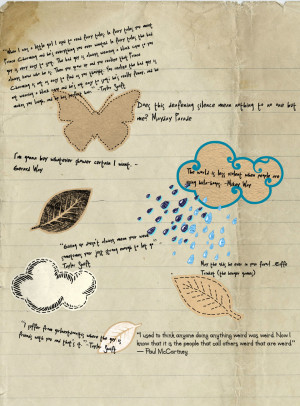 "When I was a little girl I used to read fairy tales. In fairy tales you meet
Prince Charming and he's everything you ever wanted. In fairy tales the bad
guy is very easy to spot. The bad guy is always wearing a black cape so you
always know who he is. Then you grow up and you realize that Prince
Charming is not as easy to find as you thought. You realize the bad guy is
not wearing a black cape and he's not easy to spot; he's really funny, and he
makes you laugh, and he has perfect hair." -Taylor Swift
Does this deafening silence mean nothing to no one but
me? Mayday Parade
I'm gonna buy whatever flower
Gerard Way
The world is less violent when people are
-Mikey Way
"Giving up doesn't always mean your weak
sometimes your just strong enough to let go."
Taylor Swift
May the odds be ever in your favor! -Effie
Trinket (the hunger games)
"I suffer from girlnextdooritis where the guy is
friends with you and that's it." -Taylor Swift
"I used to think anyone doing anything weird was weird. Now I
know that it is the people that call others weird that are weird."
— Paul McCartney